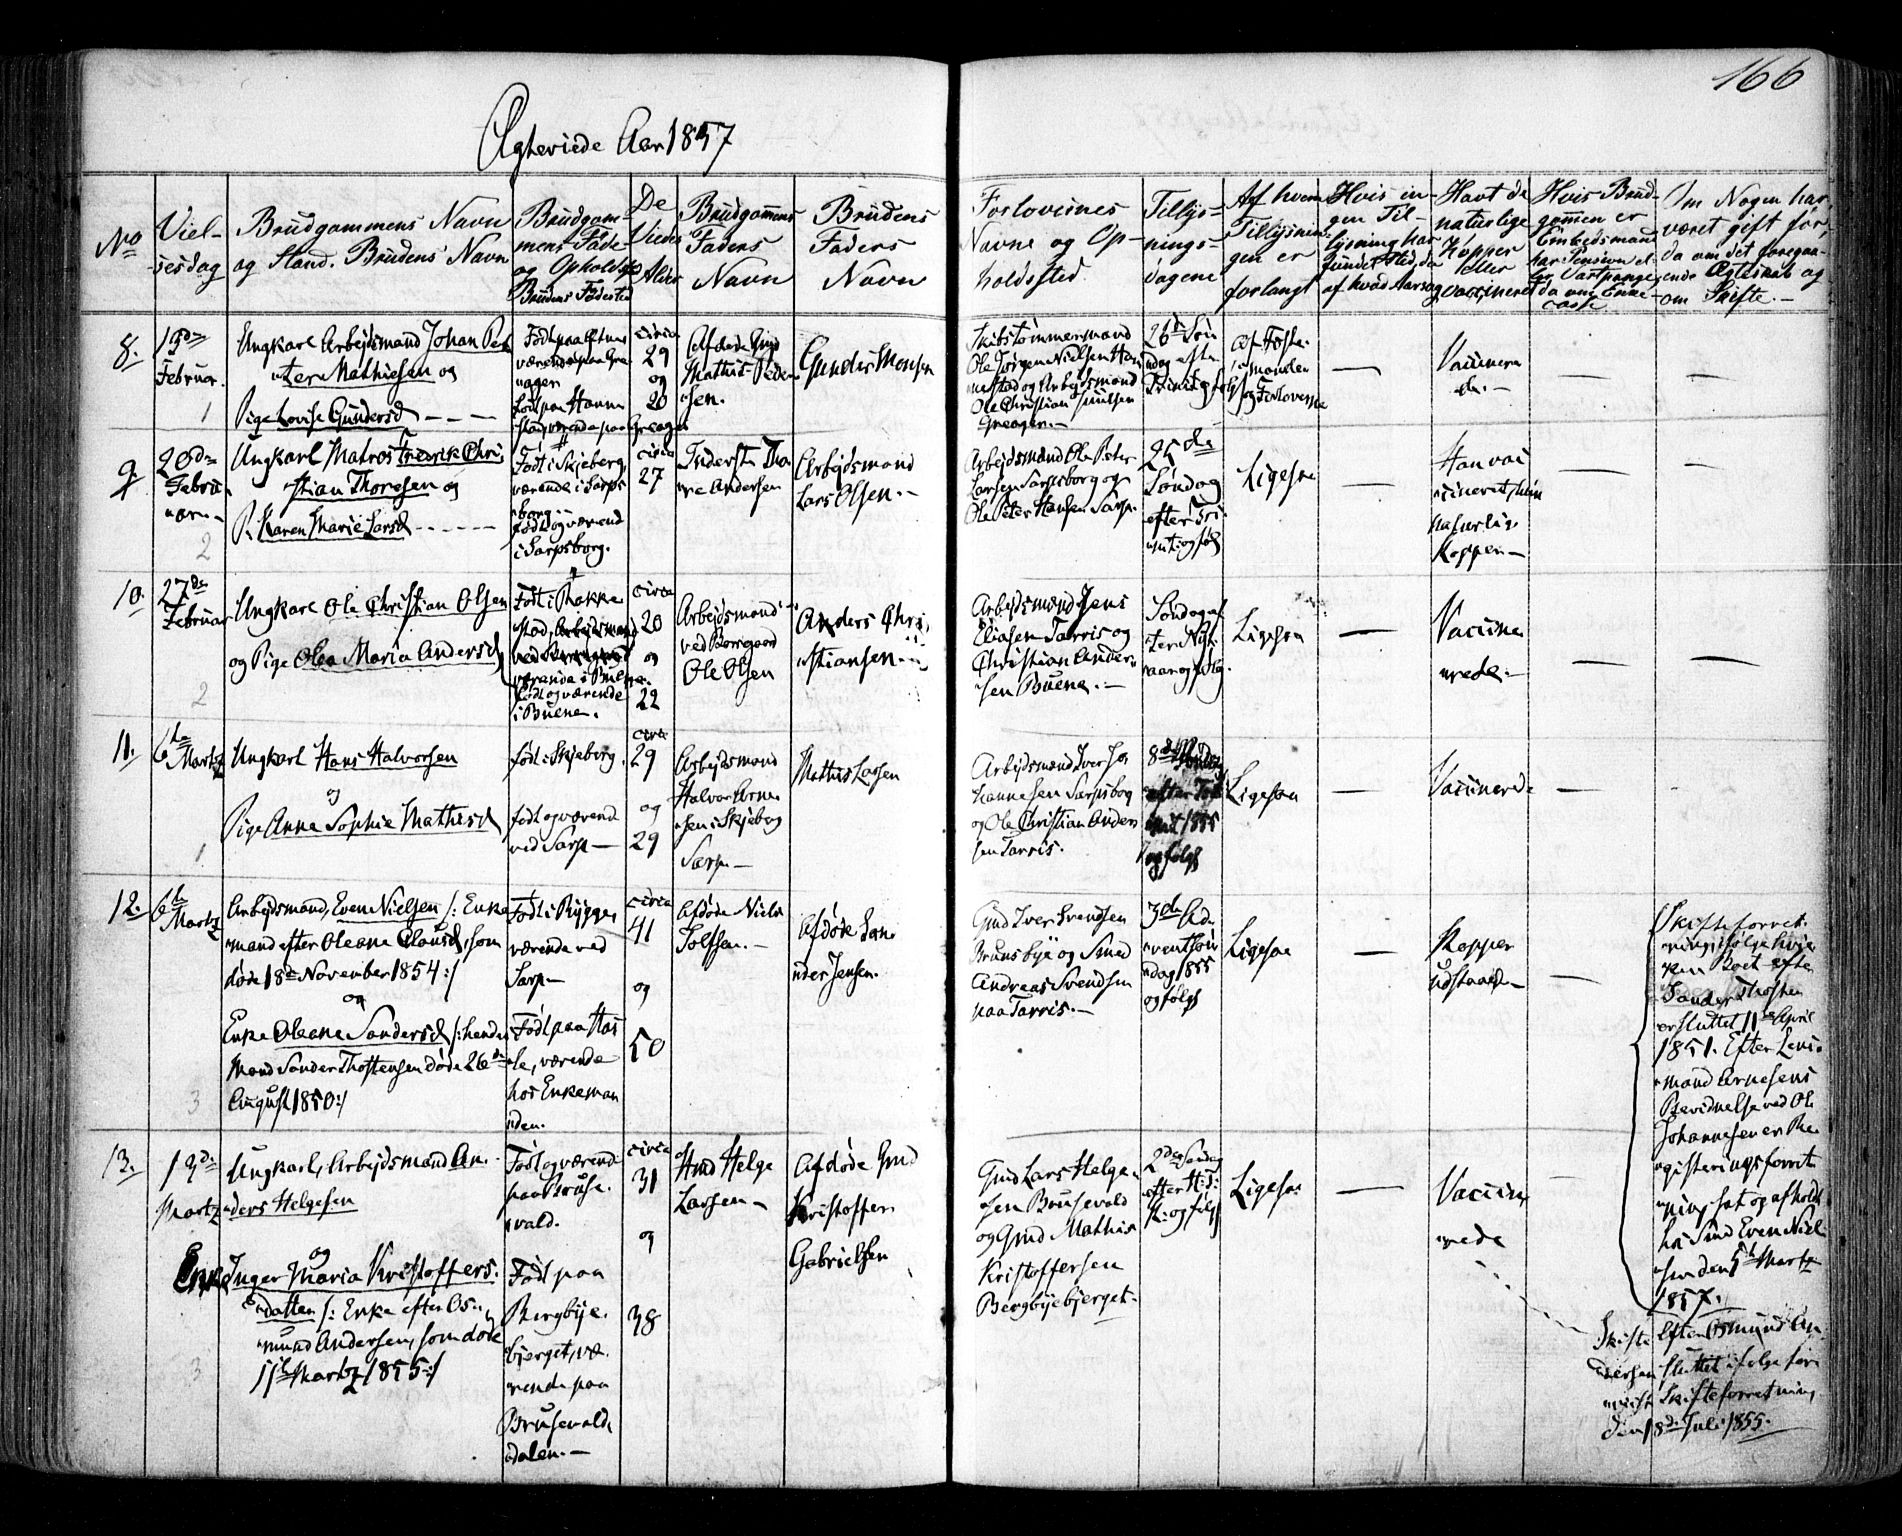 166
Ægteviede Aar 1857
No
Viel-
sesdag
Brudgommens Navn
og Stand. Brudens Navn
Brudgom-
mens Føde-
og Opholds
Brudens Fødested
De
Viedes
Alder
Brudgommens
Faders
Navn
Brudens
Faders
Navn
Forlovernes
Navne og Op-
holdssted.
Tillys-
nings-
dagene
Af hvem
Tillysnin-
gen er
forlangt
Hvis in-
gen Til-
lysning har
fundet Sted, da
af hvad Aarsag
Havt de
naturlige
Kopper
eller
vaccineret
Hvis Brud-
gommen er
Enkedsmand
har Pension el-
da em Enke-
casse
Om Nogen har
været gift før,
da om det foregaa-
ende Ægteskab og
om Skifte.-
8.
13de
Februar.
1
Ungkarl Arbejdsmand Johan Pet
ter Mathiesen og
Pige Lovise Gundersd
circa
29
og
20
Afdøde
Mathis Peder
sen.
Gunder Monsen
Skibstømmermand
Ole Jørgen Nielsen Han
nestad og Arbejdsmand
Ole Christian
Greager.-
26de Søn
dag efter
Trinit. og følg
Af Forlo
verne
—
Vaccinere
de.-
—
—
9.
20de
Febru
ar.-
2
Ungkarl Matros Fredrik Chri
stian Thoresen og
P. Karen Marie Larsd
Født i Skjeberg,
værende i Sarps
borg.-
født og værend
i Sarpsborg.
circa
27
Inderst Tho
re Andersen
Arbejdsmand
Lars Olsen.-
Arbejdsmand Ole Peter
Larsen Sarpsborg og
Ole Peter Hansen Sarp.
25de
Søndag
efter Tri
nit. og følg
Ligesaa
—
Han vac
cineret, hun
naturlig.
Kopper.-
—
—
10.
27de
Februar
2
Ungkarl Ole Christian Olsen
og Pige Olea Maria Andersd
Født i Rakke
stad,
værende i Buene.
født og værende
i Buene.
circa
20
og
22
Arbejdsmand
ved Borregaard
Ole Olsen
Anders Chri
stiansen
Arbejdsmand Jens
Eliasen Tarris og
Christian Ander
sen Buene.-
Søndag ef
ter Nyt
aar og følg.
Ligesaa
—
Vaccine
rede.-
—
—
11.
6te
Martz
1
Ungkarl Hans Halvorsen
og
Pige Anna Sophie Mathisd
født i Skjeberg.
født og værend
ved Sarp-
circa
29
og
29
Arbejdsmand
Halvor Arne
sen i Skjeberg
Sarp-
Mathis Larsen
Arbejdsmand Iver Jo
hannesen Sarpsborg
og Ole Christian Anders
sen Tarris.
8de Søndag
efter Tri
nit 1855
og følg
Ligesaa
—
Vaccinerede
—
12.
6te
Martz
3
Arbejdsmand, Even Nielsen /: Enke
mand efter Oleane Olausd, som
døde 18de November 1854 :/
og
Enke Oleane Sandersd /: hendes
Mand Sander Thostensen døde 26de
August 1850 :/
Født i Rygge,
værende ved
Sarp-
Født paa Has
le, værende
hos Enkeman
den.
circa
41
og
50
Afdøde Niels
Tolfsen.-
Afdøde San
der Jensen.
Gmd Iver Svendsen
Brunsbye og Smed
Andreas Svendsen
paa Tarris.-
3de Ad
vent Søn
dag 1855
og følg
Ligesaa
—
Kopper
udstaaede-
—
Skifteforret
ning ifølge hvil
ken Boet efter
Sander Thosten
er sluttet 11te April
1851. Efter Lens
mand Arnesens
Bevidnelse ved Ole
Johannesen er Re
gisteringsforret
ning sat og afholdt
hos Smd Even Niel
sen den 5te Martz
1857.
13.
13de
Martz
3
Ungkarl, Arbejdsmand An
ders Helgesen
og
Enke Inger Maria Kristoffers
datter /: Enke efter Os
mund Andersen, som døde
11te Martz 1855 :/
Født og værende
paa Bruse
vald.
Født paa
Bergbye
bjerget, væ
rende paa
Brusevald
dalen.-
circa
31
og
38
Hmd Helge
Larsen-
Afdøde Gmd
Kristoffer
Gabrielsen
Gmd Lars Helge
sen Brusevald
og Gmd Mathis
Kristoffersen
Bergbyebjerget-
2den Søndag
efter H. 3.
K. og følg
Ligesaa
—
Vaccine
rede
—
Skifte efter Osmund An
dersen sluttet ifølge
Skifteforretning
den 18de Juli 1855.